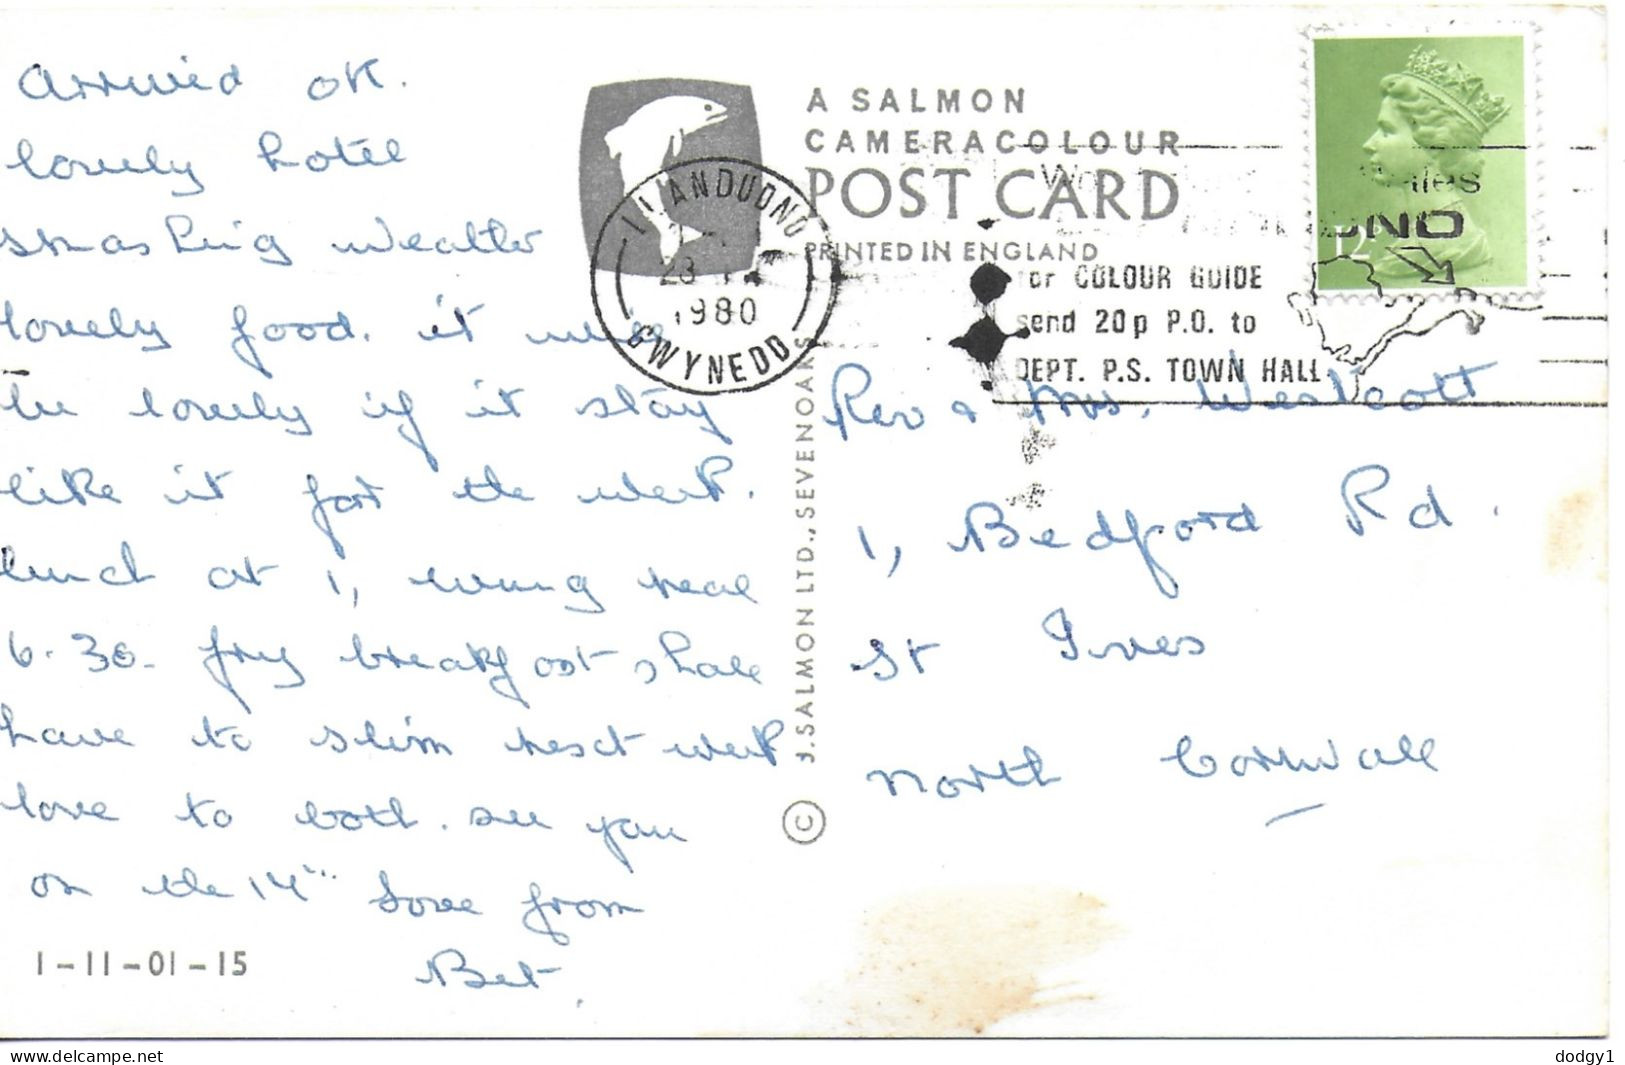 Arrived OK.
lovely hotel
smashing weather
lovely food. it will
be lovely if it stay
like it for the week.
lunch at 1, evening meal
6.30. fry breakfast shall
have to slim next week
love to both. see you
on the 14th. Love from
Bet.
1-11-01-15
A SALMON
CAMERACOLOUR
POST CARD
PRINTED IN ENGLAND
LLANDUDNO
1980
GWYNEDD
for COLOUR GUIDE
send 20p P.O. to
DEPT. P.S. TOWN HALL
12P
J. SALMON LTD., SEVENOAKS
©
Rev & Mrs. Westcott
1, Bedford Rd.
St Ives
North Cornwall
delcampe.net
dodgy1